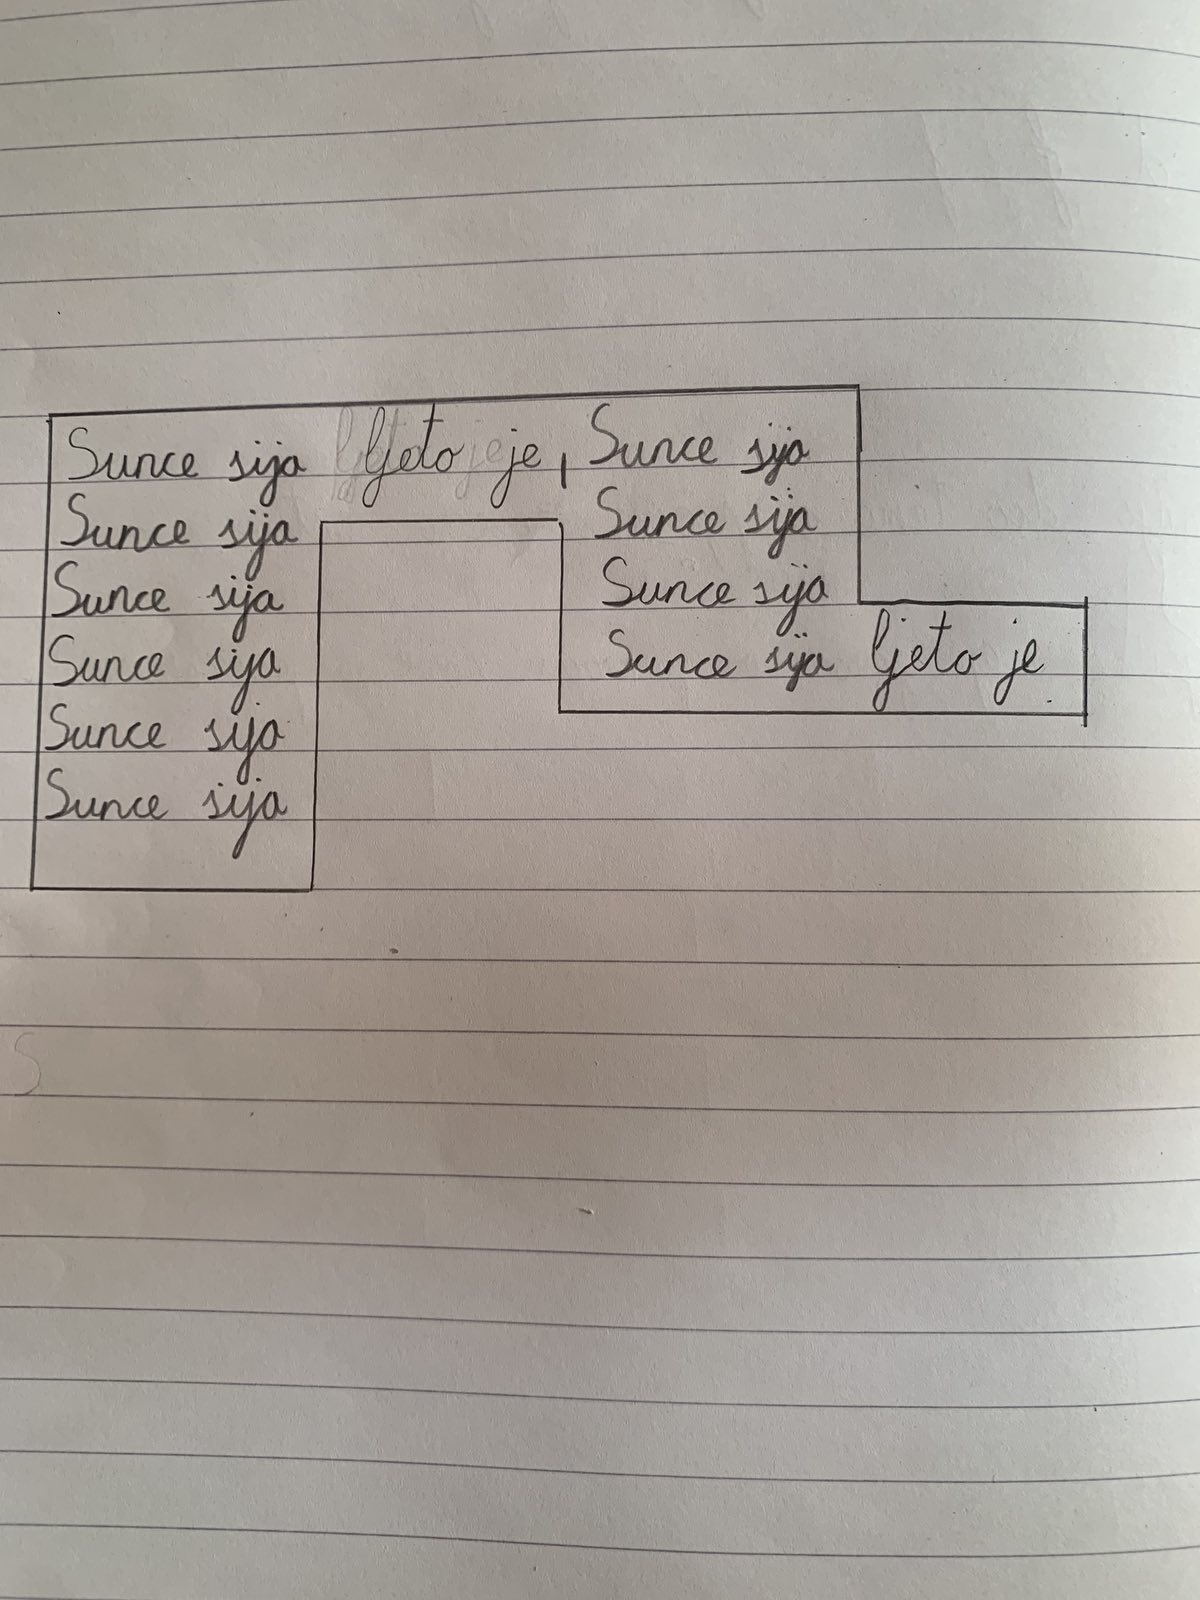 Sunce sija ljeto je, Sunce sija
Sunce sija Sunce sija
Sunce sija Sunce sija
Sunce sija Sunce sija ljeto je
Sunce sija
Sunce sija
S